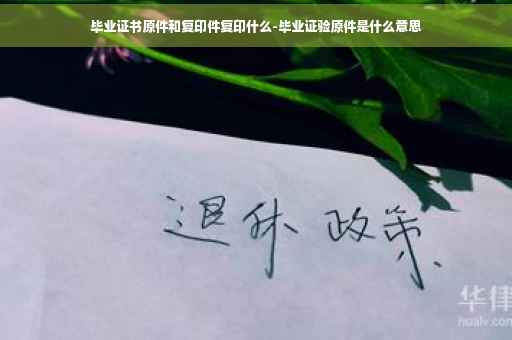 毕业证书原件和复印件复印什么-毕业证验原件是什么意思
退休 政策
华律
hualv.com